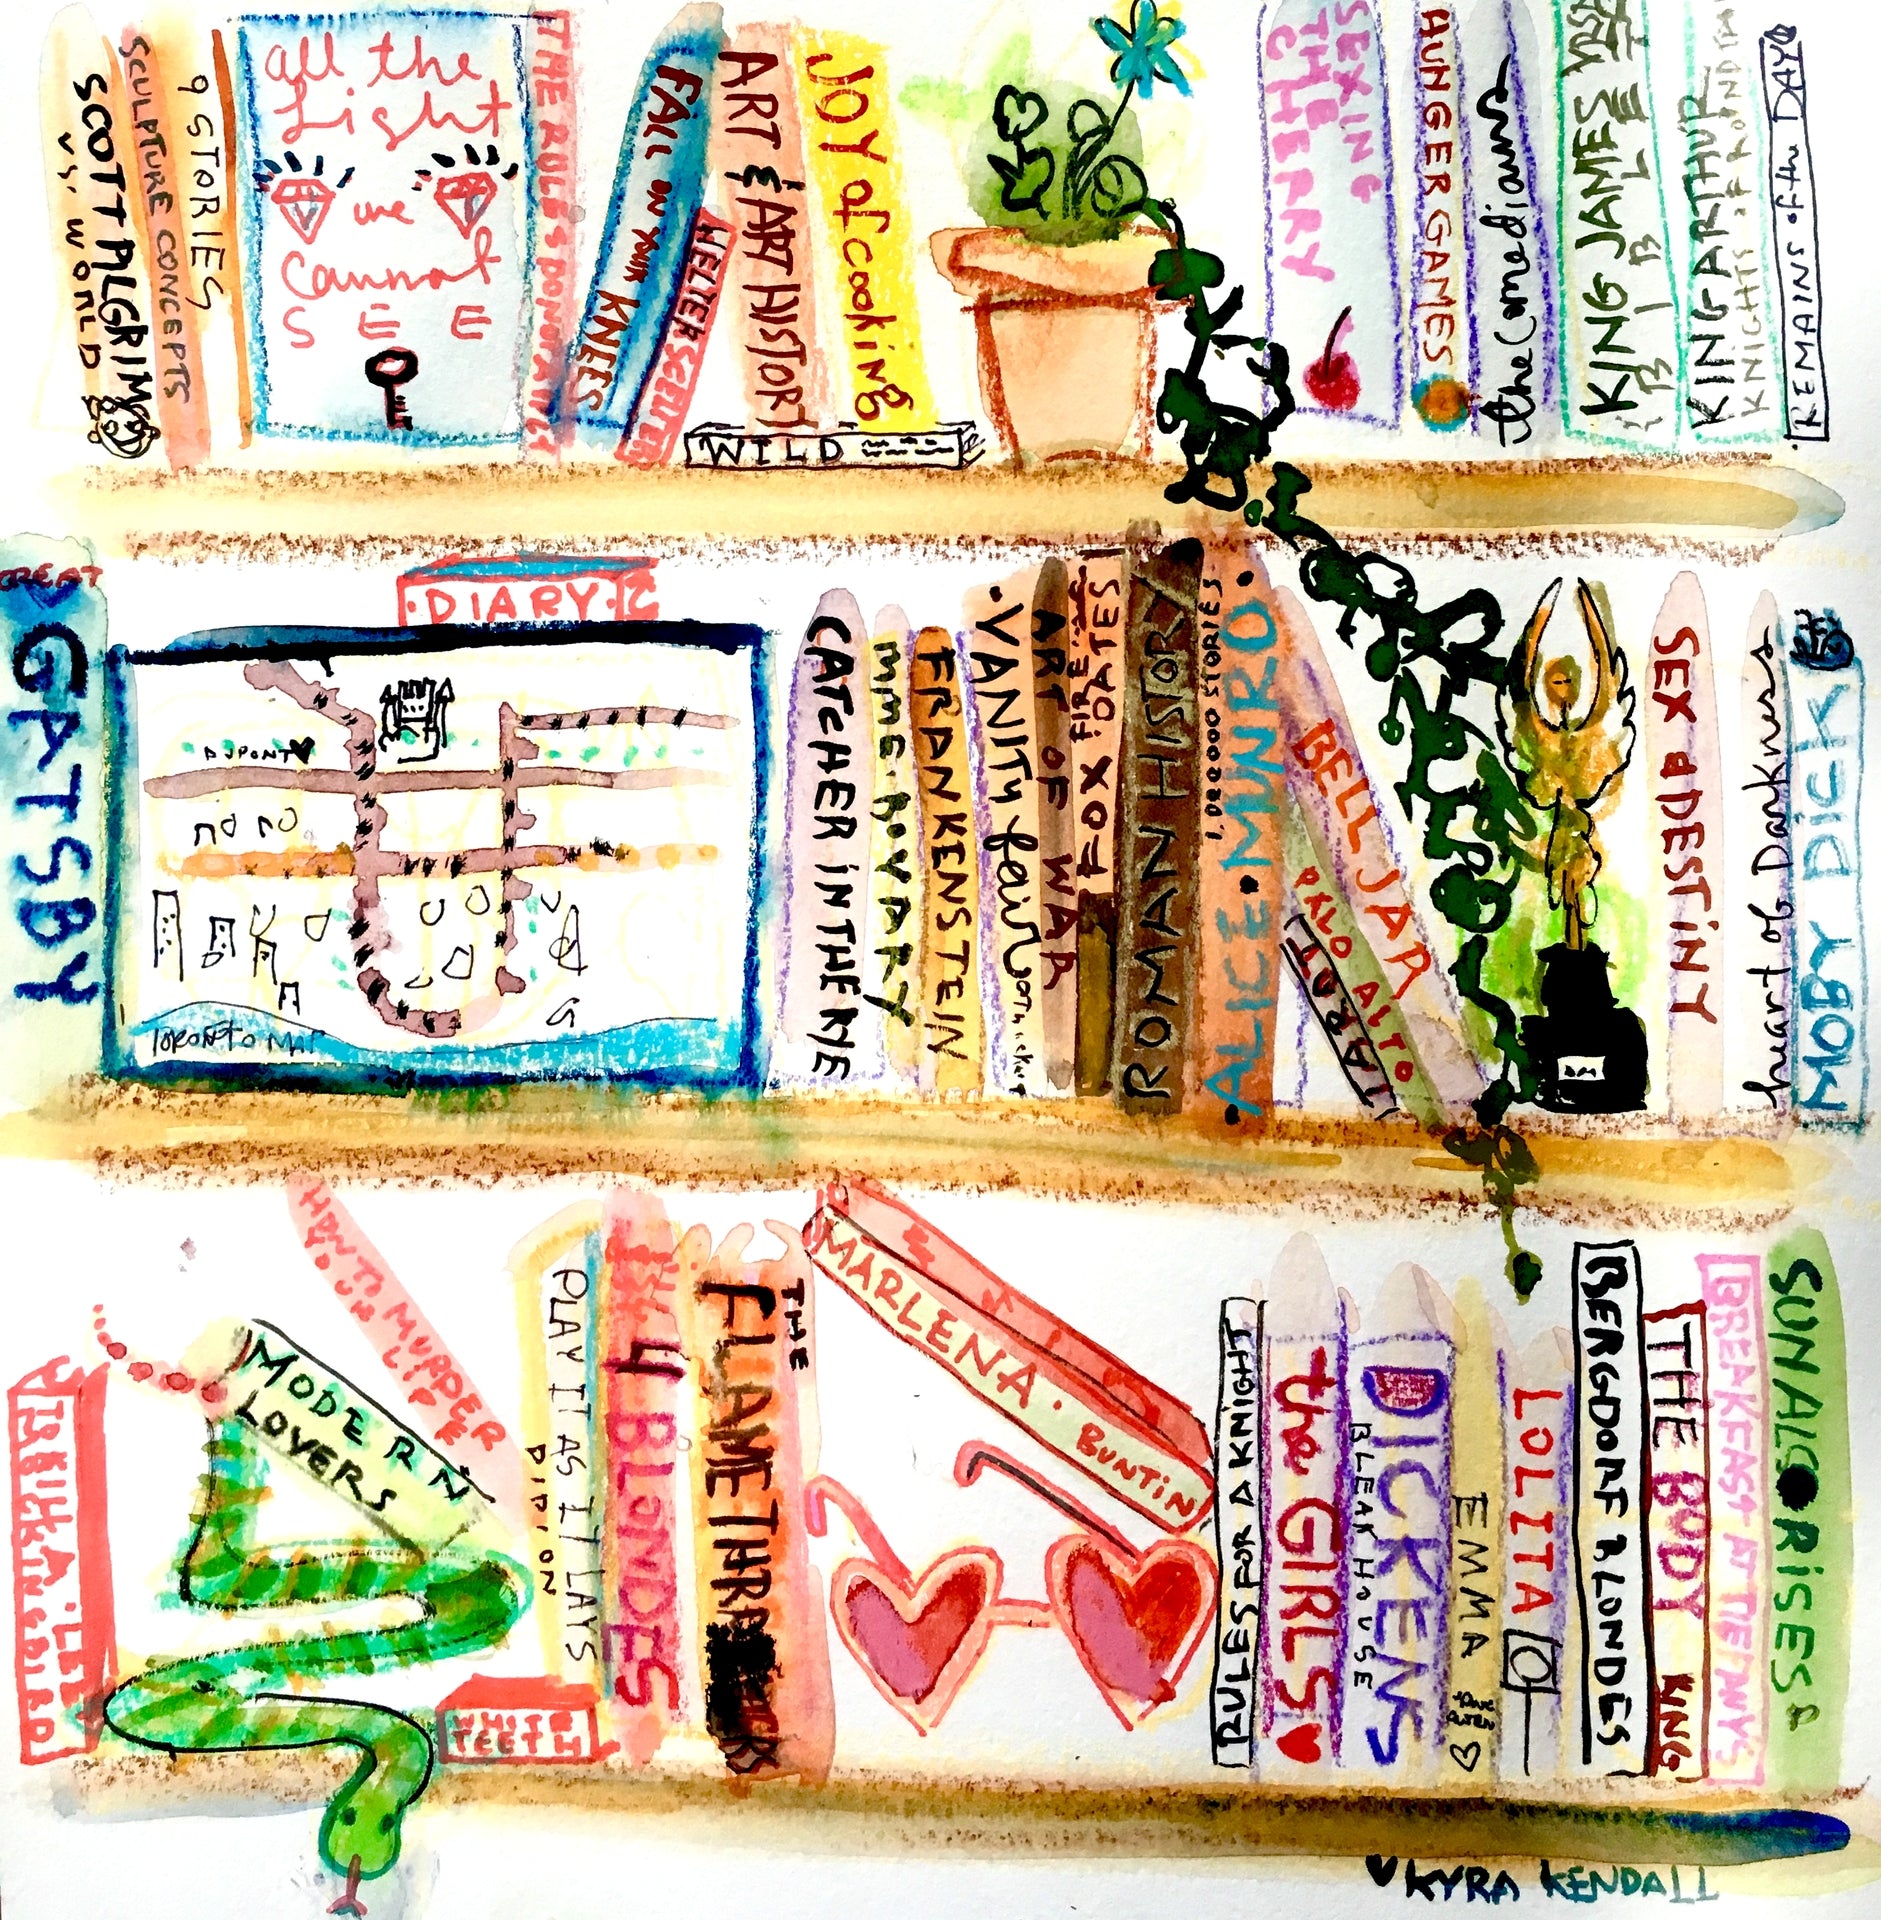 SCOTT PILGRIM
VS. WORLD
SCULPTURE CONCEPTS
9 STORIES
all the
Light
we
Cannot
SEE
THE RULES DO NOT APPLY
FALL ON YOUR KNEES
HELTER SKELTER
ART & ART HISTORY
JOY of cooking
WILD
SEXING
THE
CHERRY
HUNGER GAMES
the Comedians
KING JAMES
BIBLE
KING ARTHUR
KNIGHTS OF ROUND
REMAINS of the DAY
GREAT
GATSBY
DIARY
DUPONT
TORONTO MAP
CATCHER IN THE RYE
MME. BOVARY
FRANKENSTEIN
VANITY fair
ART OF WAR
FIRE
FOX
DATES
ROMAN HISTORY
STORIES
ALICE MUNRO
BELL JAR
PALO ALTO
TARTT
SEX & DESTINY
heart of Darkness
MOBY DICK
LET
MOCKINGBIRD
MODERN
LOVERS
HOW TO MURDER
YOUR LIFE
PLAY IT AS IT LAYS
DIDION
4 BLONDES
THE
FLAMETHROWERS
MARLENA. BUNTIN
RULES FOR A KNIGHT
the GIRLS
DICKENS
BLEAK HOUSE
EMMA
LOLITA
BERGDORF BLONDES
THE BODY KING
BREAKFAST AT TIFFANY'S
SUN ALSO RISES
WHITE
TEETH
KYRA KENDALL